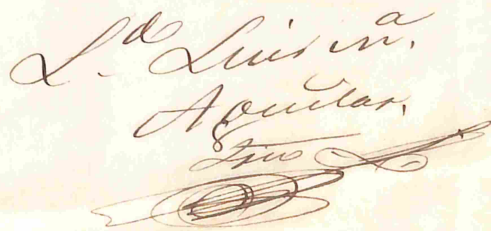 L.do Luis Mª.
Aguilar.